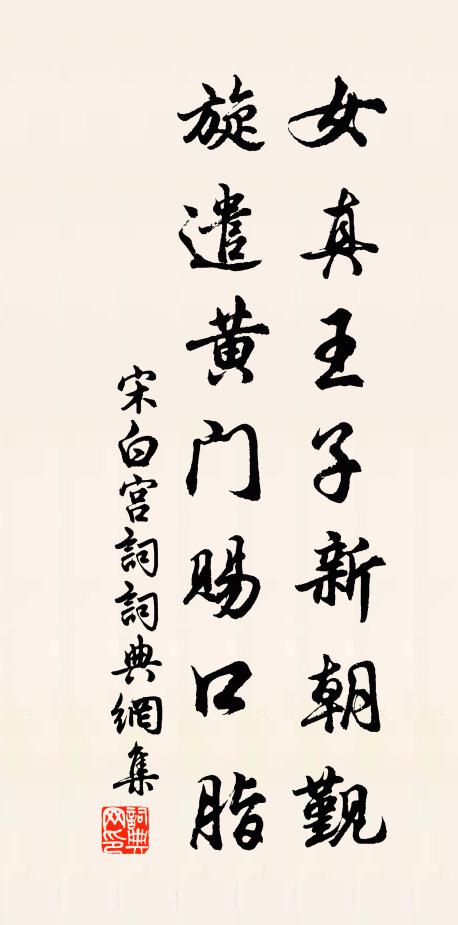 女真王子新朝觐
旋遣黄门賜口脂
宋白宫詞詞典網集
詞典网印